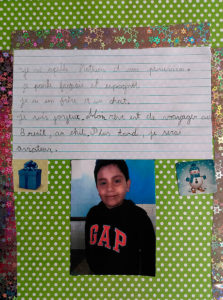 Je m'appelle Matheus et suis péruvien.
Je parle français et espagnol.
J'ai un frère et un chat.
Je suis joyeux. Mon rêve est de voyager au
Brésil, au chili. Plus tard, je serai
aviateur.
GAP